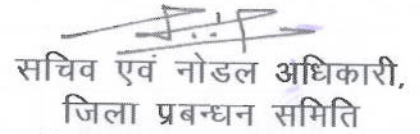 सचिव एवं नोडल अधिकारी,
जिला प्रबन्धन समिति